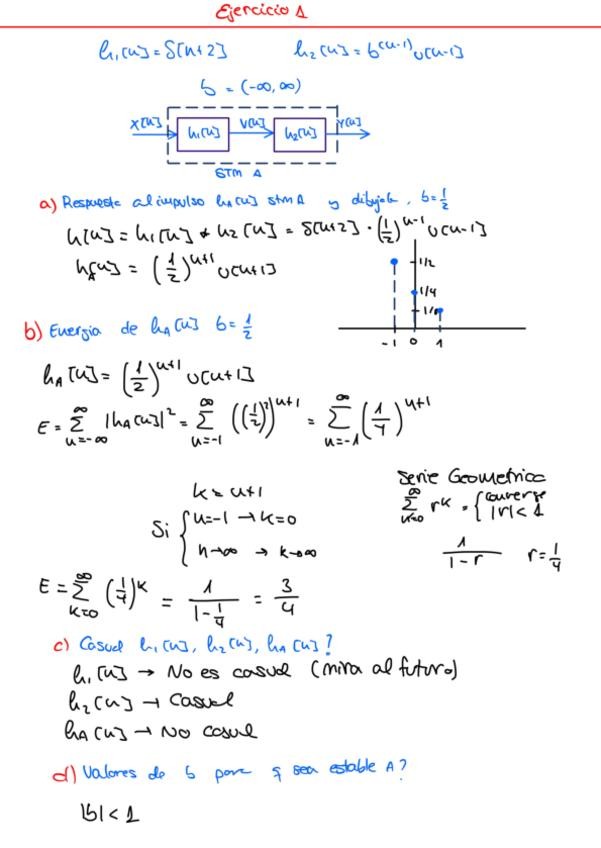 Ejercicio 1
h₁[n] = δ[n+2] h₂[n] = b^(n-1) u[n-1]
b = (-∞, ∞)
x[n] h₁[n] v[n] h₂[n] y[n]
STM A
a) Respuesta al impulso hA[n] stm A y dibujala, b = 1/2
h[n] = h₁[n] * h₂[n] = δ[n+2] · (1/2)^(n-1) u[n-1]
hA[n] = (1/2)^(n+1) u[n+1]
1/2
1/4
-1 0 1
b) Energia de hA[n] b = 1/2
hA[n] = (1/2)^(n+1) u[n+1]
E = ∑_{n=-∞}^{∞} |hA[n]|² = ∑_{n=-1}^{∞} ((1/2)²)^(n+1) = ∑_{n=-1}^{∞} (1/4)^(n+1)
k = n+1
Si { n=-1 → k=0
n→∞ → k→∞
Serie Geometrica
∑_{k=0}^{∞} r^k = { converge |r| < 1
1/(1-r) r = 1/4
E = ∑_{k=0}^{∞} (1/4)^k = 1/(1-1/4) = 3/4
c) Casual h₁[n], h₂[n], hA[n]?
h₁[n] → No es casual (mira al futuro)
h₂[n] → Casual
hA[n] → No casual
d) Valores de b para q sea estable A?
|b| < 1